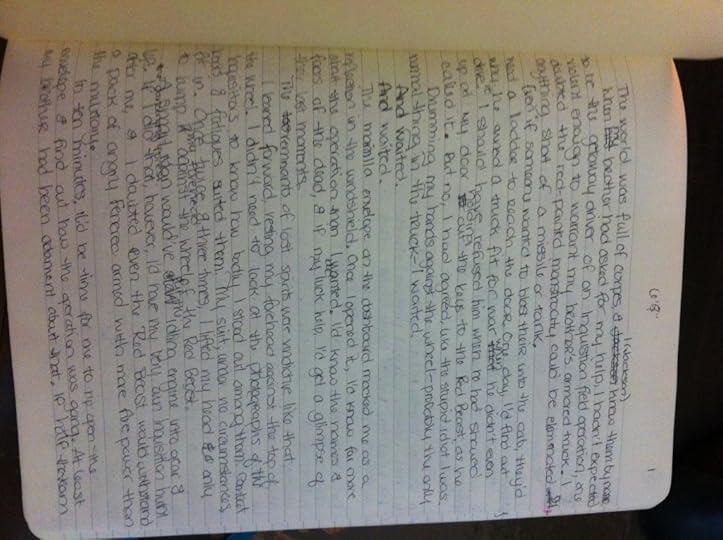 618
1
The world was full of corpses & I knew them by name.
(Jackson)
When brother had asked for my help, I hadn't expected
to be the getaway driver of an Inquisition field operation, one
violent enough to warrant my brother's armored truck. I
doubted the red-painted monstrosity could be eliminated by
anything short of a missile or tank.
Even if someone wanted to blast their way into the cab, they'd
need a ladder to reach the door. One day, I'd find out
why he owned a truck fit for war when he didn't even
drive. I should have refused him when he had showed
up at my door holding out the keys to the Red Beast, as he
called it. But no, I had agreed, like the stupid idiot I was.
Drumming my hands against the wheel-probably the only
normal thing in the truck-I waited.
And waited.
And waited.
The manilla envelope on the dashboard mocked me as a
reflection in the windshield. Once I opened it, I'd know far more
about the operation than I wanted. I'd know the names &
faces of the dead, & if my luck held, I'd get a glimpse of
their last moments.
The torments of lost spirits were vindictive like that.
I leaned forward, resting my forehead against the top of
the wheel. I didn't need to look at the photographs of the
Inquisitors to know how badly I stood out among them. Combat
gear & fatigues suited them. My suit, under no circumstances,
fit in. Once, twice, & three times, I lifted my head & only
to bump it against the wheel of the Red Beast.
would've idling engine into gear &
left. If I did that, however, I'd have my very own Inquisition hunt
after me, & I doubted even the Red Beast would withstand
a pack of angry Fenerec armed with more firepower than
the
In ten minutes, it'd be time for me to rip open the
envelope & find out how the operation was going. At least
my brother had been adamant about that. If half the team